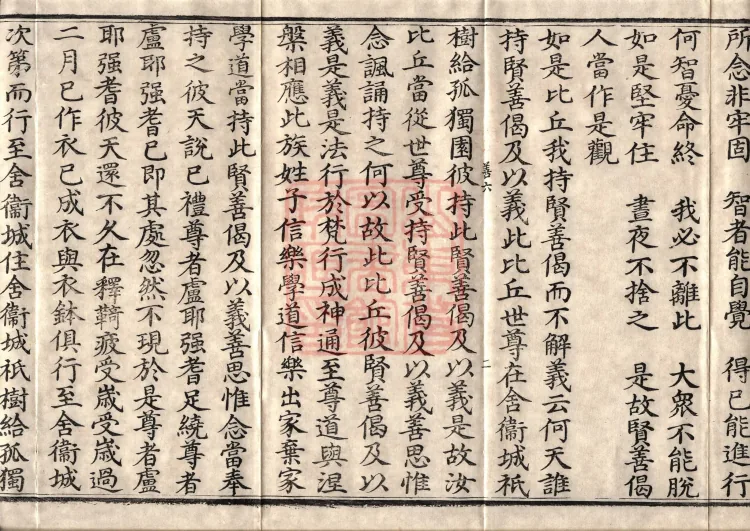 所念非牢固　智者能自覺　得已能進行
何智憂命終　我必不離此　大衆不能脫
如是堅牢住　晝夜不捨之　是故賢善偈
人當作是觀
如是比丘我持賢善偈而不解義云何天誰
持賢善偈及以義此比丘世尊在舍衞城祇
善六　二
樹給孤獨園彼持此賢善偈及以義是故汝
比丘當從世尊受持賢善偈及以義善思惟
念諷誦持之何以故此比丘彼賢善偈及以
義是義是法行於梵行成神通至尊道與涅
槃相應此族姓子信樂學道信樂出家棄家
學道當持此賢善偈及以義善思惟念當奉
持之彼天說已禮尊者盧耶强耆足繞尊者
盧耶强耆已即其處忽然不現於是尊者盧
耶强耆彼天還不久在釋疲受歲受歲過
二月已作衣已成衣與衣鉢俱行至舍衞城
次第而行至舍衞城住舍衞城祇樹給孤獨